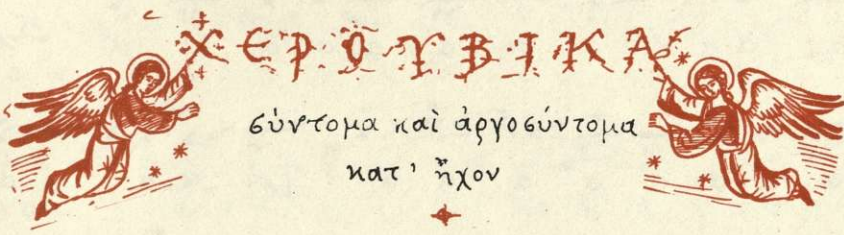 ΧΕΡΟΥΒΙΚΑ
σύντομα καὶ ἀργοσύντομα
κατ' ἦχον